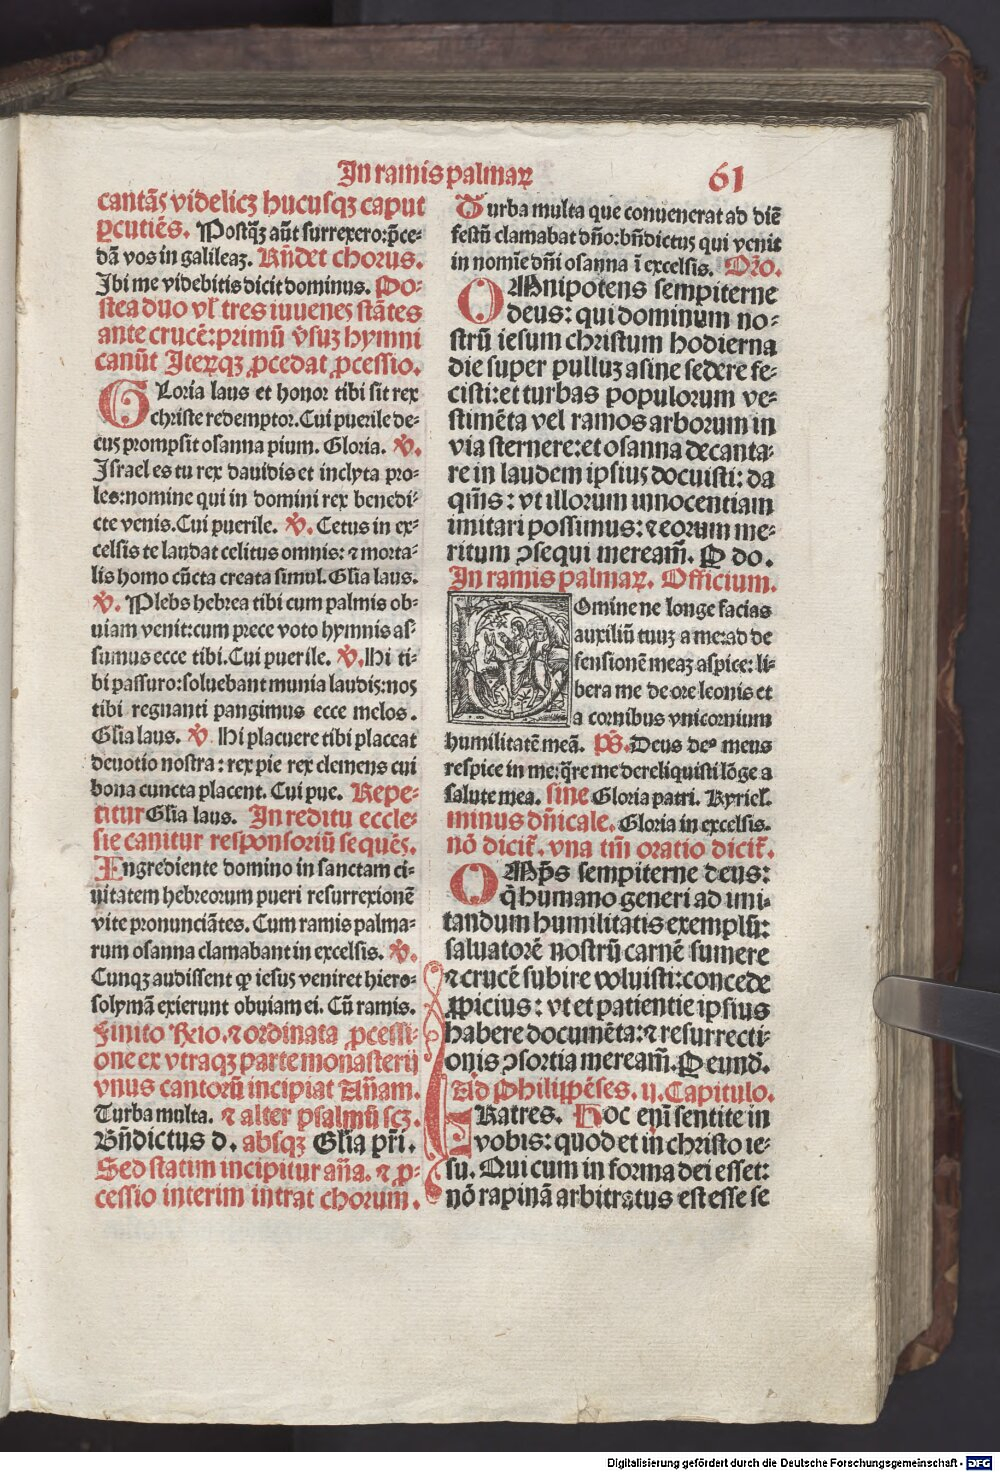 In ramis palmaꝝ 61
cantãs videlicꝫ hucusqꝫ caput
ꝑcutiẽs. Postqꝫ aũt surrexero: p̃ce-
dã vos in galileaꝫ. Rñdet chorus.
Ibi me videbitis dicit dominus. Po-
stea duo vl̕ tres iuuenes stãtes
ante crucẽ: primũ v̕suꝫ hymni
canũt Iteꝝqꝫ ꝓcedat ꝓcessio.
GLoria laus et honor tibi sit rex
christe redemptor. Cui puerile de-
cus prompsit osanna pium. Gloria. ℣.
Israel es tu rex dauidis et inclyta pro-
les: nomine qui in domini rex benedi-
cte venis. Cui puerile. ℣. Cetus in ex-
celsis te laudat celitus omnis: ⁊ morta-
lis homo cũcta creata simul. Gl̃ia laus.
℣. Plebs hebrea tibi cum palmis ob-
uiam venit: cum prece voto hymnis as-
sumus ecce tibi. Cui puerile. ℣. Hi ti-
bi passuro: soluebant munia laudis: nos
tibi regnanti pangimus ecce melos.
Gl̃ia laus. ℣. Hi placuere tibi placeat
deuotio nostra: rex pie rex clemens cui
bona cuncta placent. Cui pue. Repe-
titur Gl̃ia laus. In reditu eccle-
sie canitur responsoriũ sequẽs.
INgrediente domino in sanctam ci-
uitatem hebreorum pueri resurrexionẽ
vite pronunciãtes. Cum ramis palma-
rum osanna clamabant in excelsis. ℣.
Cunqꝫ audissent ꝙ iesus veniret hiero-
solymã exierunt obuiam ei. Cũ ramis.
Finito Rxio. ⁊ ordinata ꝓcessi-
one ex vtraqꝫ parte monasterij
vnus cantorũ incipiat Añam.
Turba multa. ⁊ alter psalmũ scꝫ.
Bñdictus d. absqꝫ Gl̃ia pr̃i.
Sed statim incipitur aña. ⁊ ꝓ-
cessio interim intrat chorum.
Turba multa que conuenerat ad diẽ
festũ clamabat dño: bñdictus qui venit
in nomĩe dñi osanna ĩ excelsis. Or̃o.
OMnipotens sempiterne
deus: qui dominum no-
strũ iesum christum hodierna
die super pulluꝫ asine sedere fe-
cisti: et turbas populorum ve-
stimẽta vel ramos arborum in
via sternere: et osanna decanta-
re in laudem ipsius docuisti: da
qm̃s: vt illorum innocentiam
imitari possimus: ⁊ eorum me-
ritum ↄsequi meream̃. P do.
In ramis palmaꝝ. Officium.
DOmine ne longe facias
auxiliũ tuuꝫ a me: ad de
fensionẽ meaꝫ aspice: li-
bera me de ore leonis et
a cornibus vnicornium
humilitatẽ meã. P̃s. Deus deꝰ meus
respice in me: q̃re me dereliquisti lõge a
salute mea. sine Gloria patri. Kyriel̕.
minus dñicale. Gloria in excelsis.
nõ dicit᷑. vna tm̃ oratio dicit᷑.
OMp̃s sempiterne deus:
q̕ humano generi ad imi-
tandum humilitatis exemplũ:
saluatorẽ nostrũ carnẽ sumere
⁊ crucẽ subire voluisti: concede
ꝓpicius: vt et patientie ipsius
habere documẽta: ⁊ resurrecti-
onis ↄsortia meream̃. P eund̃.
Ad Philippẽses. ij. Capitulo.
FRatres. Hoc eni̅ sentite in
vobis: quod et in christo ie-
su. Qui cum in forma dei esset:
nõ rapinã arbitratus est esse se
Digitalisierung gefördert durch die Deutsche Forschungsgemeinschaft - DFG